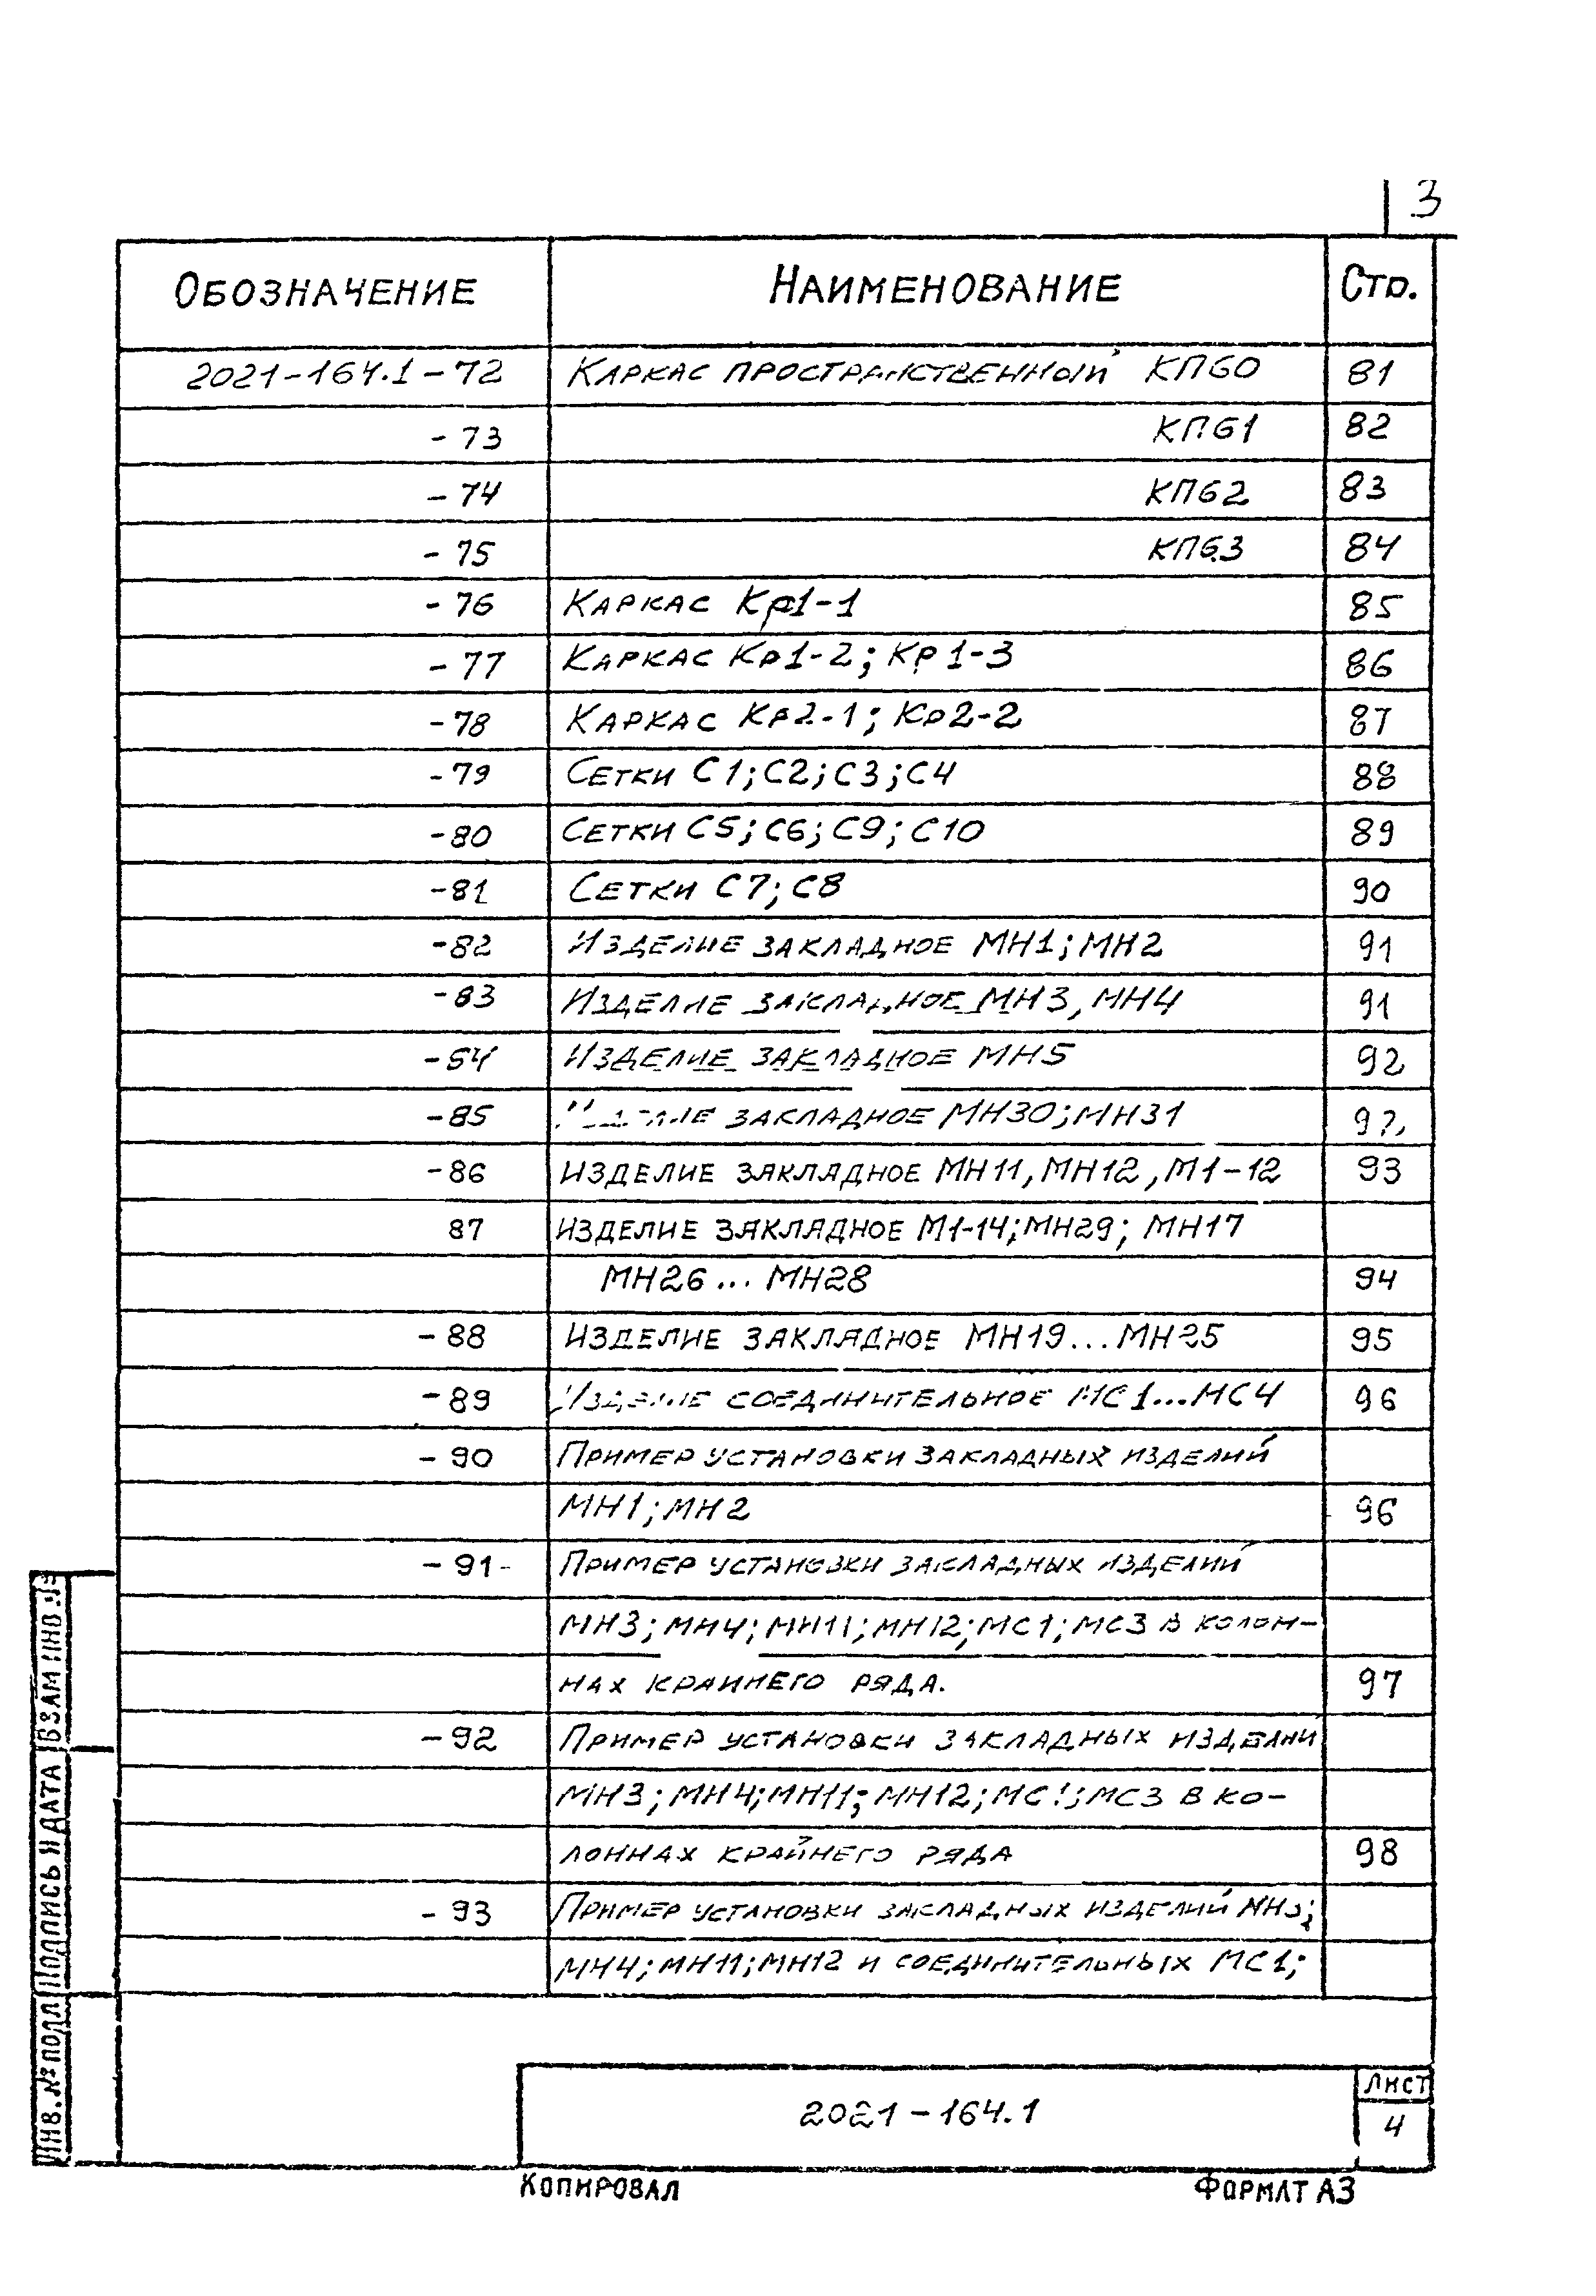 3
Обозначение Наименование Стр.
2021-164.1-72 Каркас пространственный КП60 81
-73 КП61 82
-74 КП62 83
-75 КП63 84
-76 Каркас Кр1-1 85
-77 Каркас Кр1-2; Кр1-3 86
-78 Каркас Кр2-1; Кр2-2 87
-79 Сетки С1; С2; С3; С4 88
-80 Сетки С5; С6; С9; С10 89
-81 Сетки С7; С8 90
-82 Изделие закладное МН1; МН2 91
-83 Изделие закладное МН3, МН4 91
-84 Изделие закладное МН5 92
-85 Изделие закладное МН30; МН31 92
-86 Изделие закладное МН11, МН12, М1-12 93
87 Изделие закладное М1-14; МН29; МН17
МН26...МН28 94
-88 Изделие закладное МН19...МН25 95
-89 Изделие соединительное МС1...МС4 96
-90 Пример установки закладных изделий
МН1; МН2 96
-91- Пример установки закладных изделий
МН3; МН4; МН11; МН12; МС1; МС3 в колон-
нах крайнего ряда. 97
-92 Пример установки закладных изделий
МН3; МН4; МН11; МН12; МС1; МС3 в ко-
лоннах крайнего ряда 98
-93 Пример установки закладных изделий МН3;
МН4; МН11; МН12 и соединительных МС1;
Инв. № подл Подпись и дата Взам инв №
2021-164.1
Лист
4
Копировал Формат А3